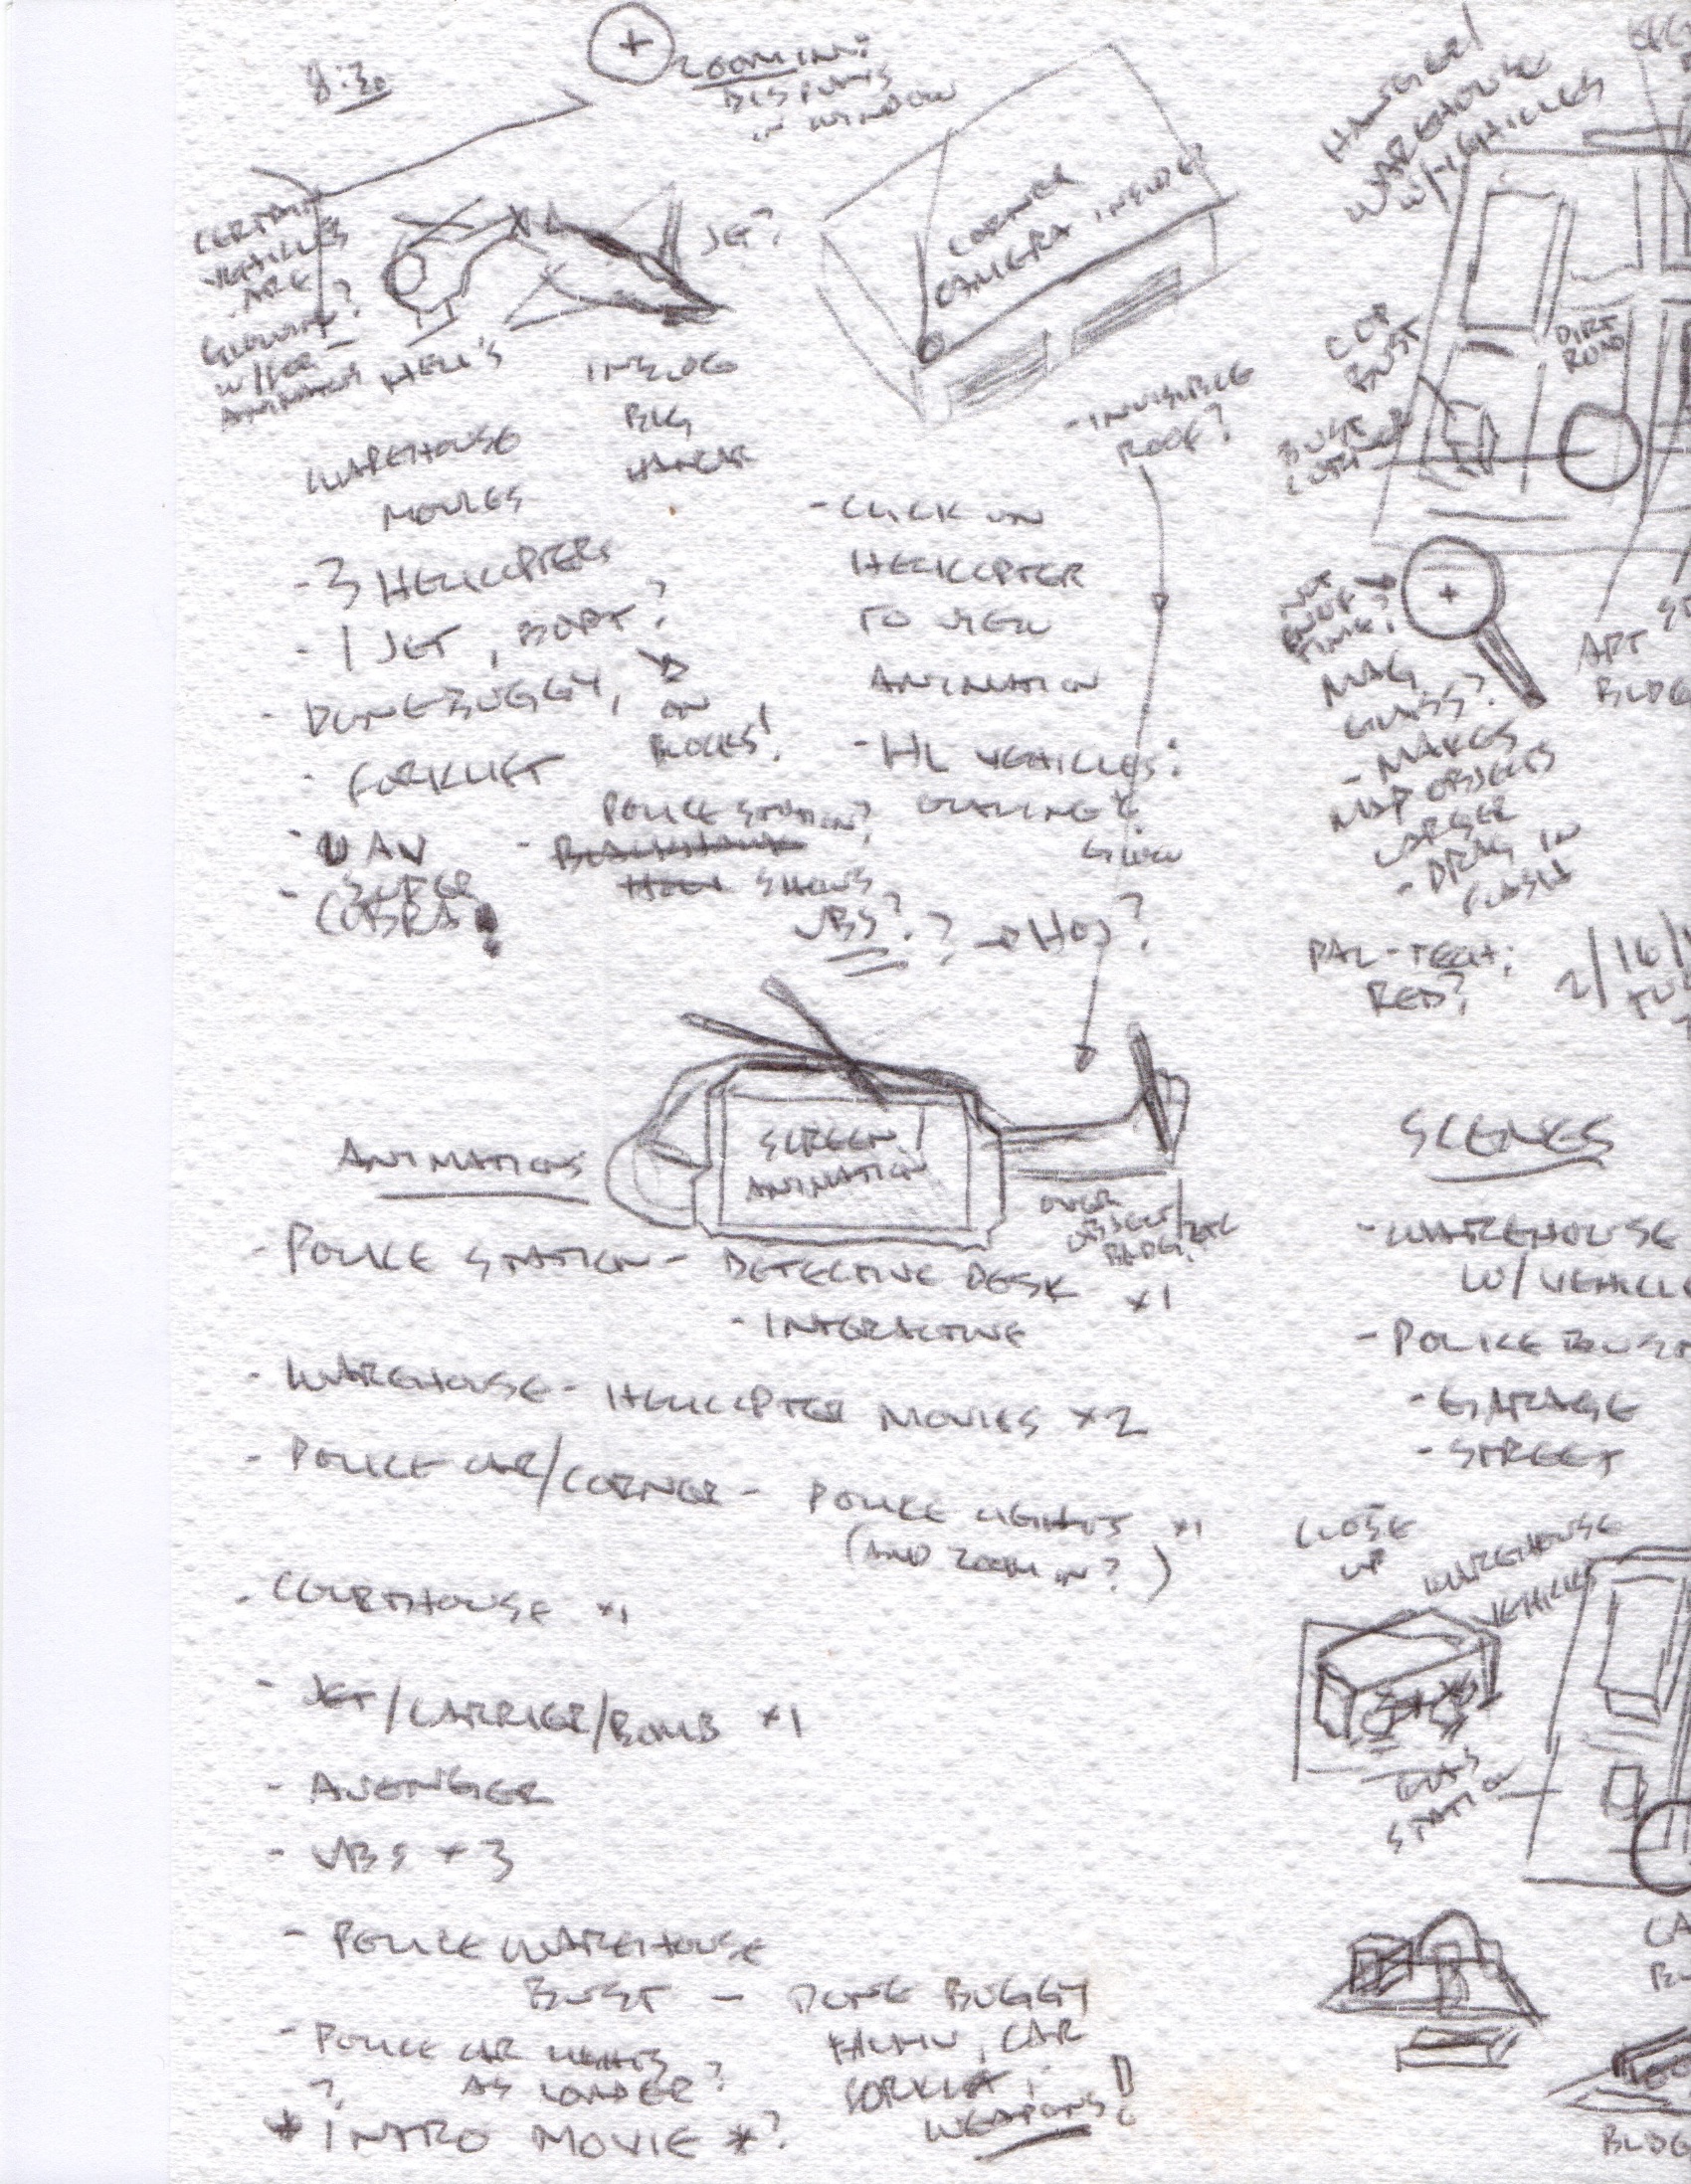 ZOOM IN:
DISPLAYS
IN WINDOW
CERTAIN
VEHICLES
ARE
GLOWING?
W/FOR
ANIMATIONS
HELI'S
JET?
INSIDE
BIG
HANGAR
CORNER
CAMERA INSIDE?
- INVISIBLE
ROOF?
WAREHOUSE
MOVIES
- 3 HELICOPTERS
- 1 JET, BOAT?
ON
BLOCKS!
- DUNE BUGGY,
- FORKLIFT
- UAV
- SUPER
COBRA!
- CLICK ON
HELICOPTER
TO VIEW
ANIMATION
- HL VEHICLES:
OUTLINE &
GLOW
POLICE STATION?
- BLACKHAWK
SHOWS
VBS? ? → HOJ?
HANGER/
WAREHOUSE
W/VEHICLES
COP
BUST
DIRT
ROAD
BUST
CORNER
NOT
ENUF
TIME?
MAG
GLASS?
- MAKES
MAP OBJECTS
LARGER
- DRAG IN
FLASH
ART
BLDG
PAL-TECH:
RED?
2/16/
ANIMATIONS
SCREEN/
ANIMATION
OVER
OBJECT/
BLDG, ETC
- POLICE STATION - DETECTIVE DESK x1
- INTERACTIVE
- WAREHOUSE - HELICOPTER MOVIES x2
- POLICE CAR/CORNER - POLICE LIGHTS x1
(AND ZOOM IN?)
- COURTHOUSE x1
- JET/CARRIER/BOMB x1
- AVENGER
- VBS x 3
- POLICE WAREHOUSE
BUST - DUNE BUGGY
CAR
FORKLIFT,
WEAPONS!
- POLICE CAR LIGHTS
? AS LOADER?
* INTRO MOVIE *?
SCENES
- WAREHOUSE
W/VEHICLE
- POLICE BUST
- GARAGE
- STREET
CLOSE
UP
WAREHOUSE
VEHICLES
GAS
STATION
BLDG